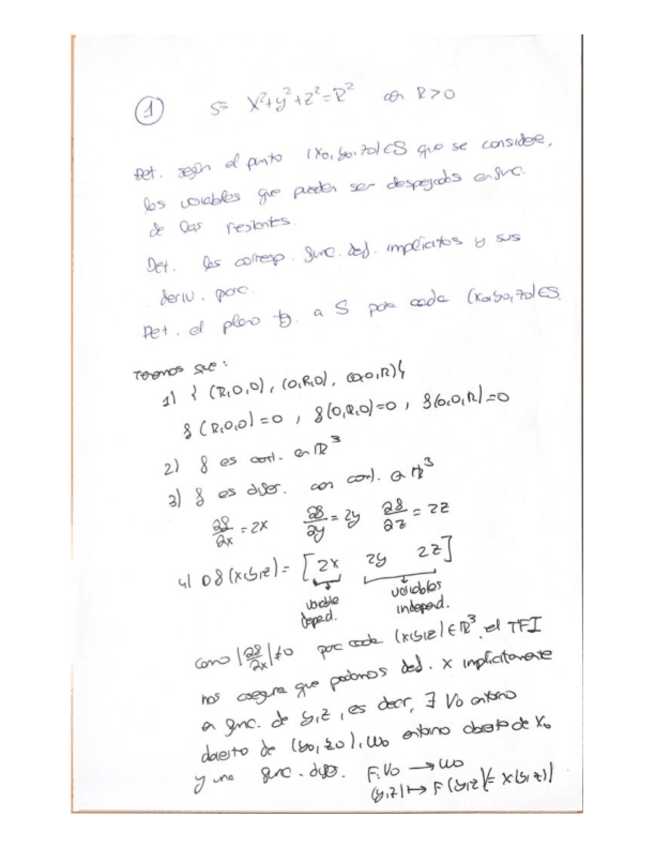 ① S≡ x²+y²+z²=R² con R>0
Det. según el punto (x0,y0,z0)∈S que se considere,
las variables que pueden ser despejadas en func.
de las restantes.
Det. las corresp. func. def. implícitas y sus
deriv. parc.
Det. el plano tg. a S para cada (x0,y0,z0)∈S.
Tenemos que:
1) { (R,0,0), (0,R,0), (0,0,R)}
f(R,0,0)=0, f(0,R,0)=0, f(0,0,R)=0
2) f es cont. en R³
3) f es difer. con cont. en R³
∂f/∂x = 2x ∂f/∂y = 2y ∂f/∂z = 2z
4) Df(x,y,z)= [2x 2y 2z]
variable variables
depend. independ.
Como |∂f/∂x|≠0 para cada (x,y,z)∈R³, el TFI
nos asegura que podemos def. x implícitamente
en func. de y,z, es decir, ∃ V0 entorno
abierto de (y0,z0), W0 entorno abierto de x0
y una func. difer. F:V0 → W0
(y,z) ↦ F(y,z)(= x(y,z))